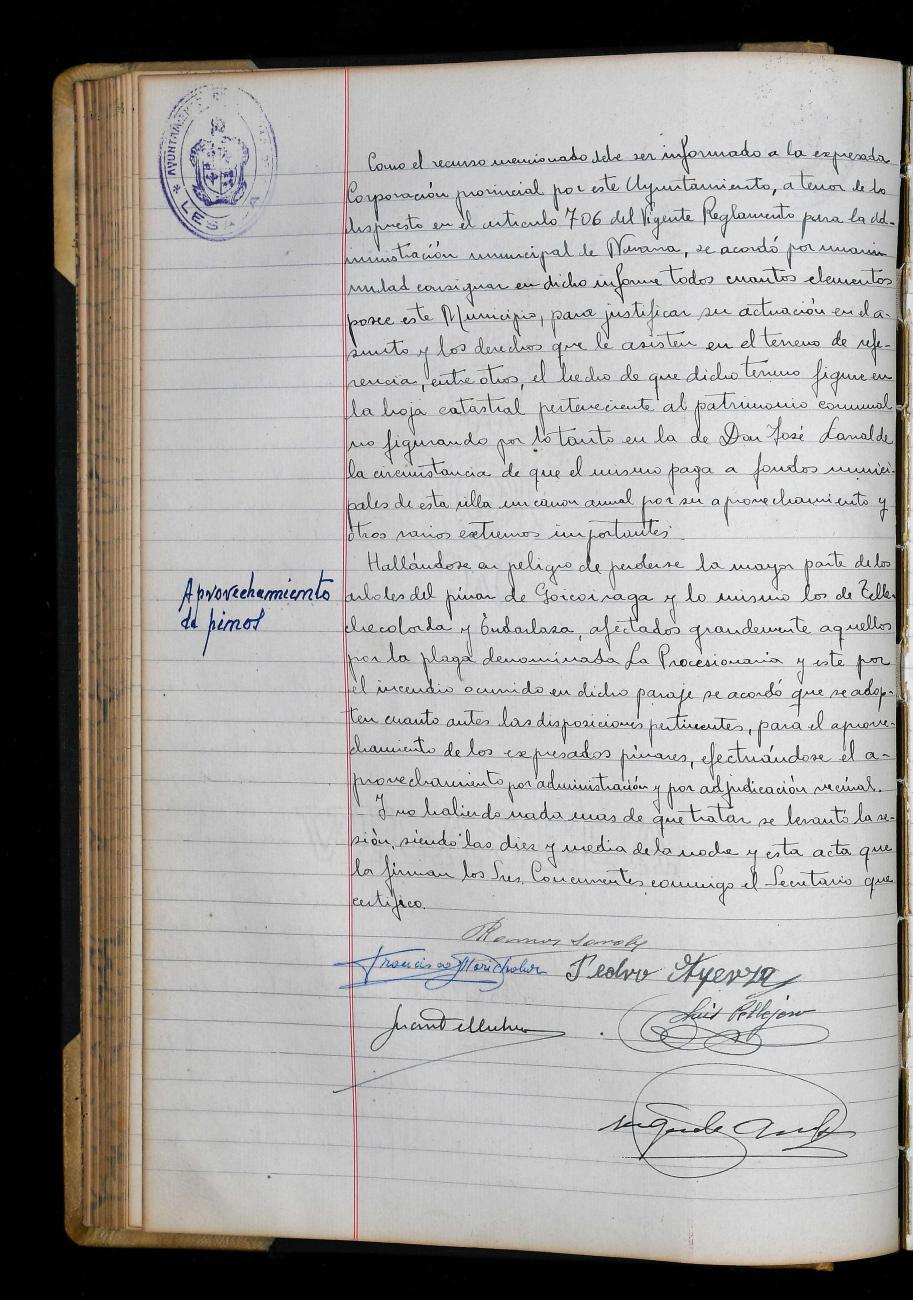 AYUNTAMIENTO DE
LESACA
Como el recurso mencionado debe ser informado a la expresada
Corporación provincial por este Ayuntamiento, a tenor de lo
dispuesto en el artículo 706 del Vigente Reglamento para la ad-
ministración municipal de Navarra, se acordó por unani-
midad consignar en dicho informe todos cuantos elementos
posee este Municipio, para justificar su actuación en el a-
sunto y los derechos que le asisten en el terreno de refe-
rencia, entre otros, el hecho de que dicho terreno figure en
la hoja catastral perteneciente al patrimonio comunal
no figurando por lo tanto en la de Don José Lanalde
la circunstancia de que el mismo paga a fondos munici-
pales de esta villa un canon anual por su aprovechamiento y
otros varios extremos importantes.
Aprovechamiento
de pinos
Hallándose en peligro de perderse la mayor parte de los
arboles del pinar de Goicoiraga y lo mismo los de Telle-
checolorda y Endarlaza, afectados grandemente aquellos
por la plaga denominada La Procesionaria y este por
el incendio ocurrido en dicho paraje se acordó que se adop-
ten cuanto antes las disposiciones pertinentes, para el aprove-
chamiento de los expresados pinares, efectuándose el a-
provechamiento por administración y por adjudicación vecinal.
Y no habiendo nada mas de que tratar se levanto la se-
sión, siendo las diez y media de la noche y esta acta que
la firman los Sres. Concurrentes conmigo el Secretario que
certifico.
Francisco Marichalar Pedro Ayerza
Luis Pellejero